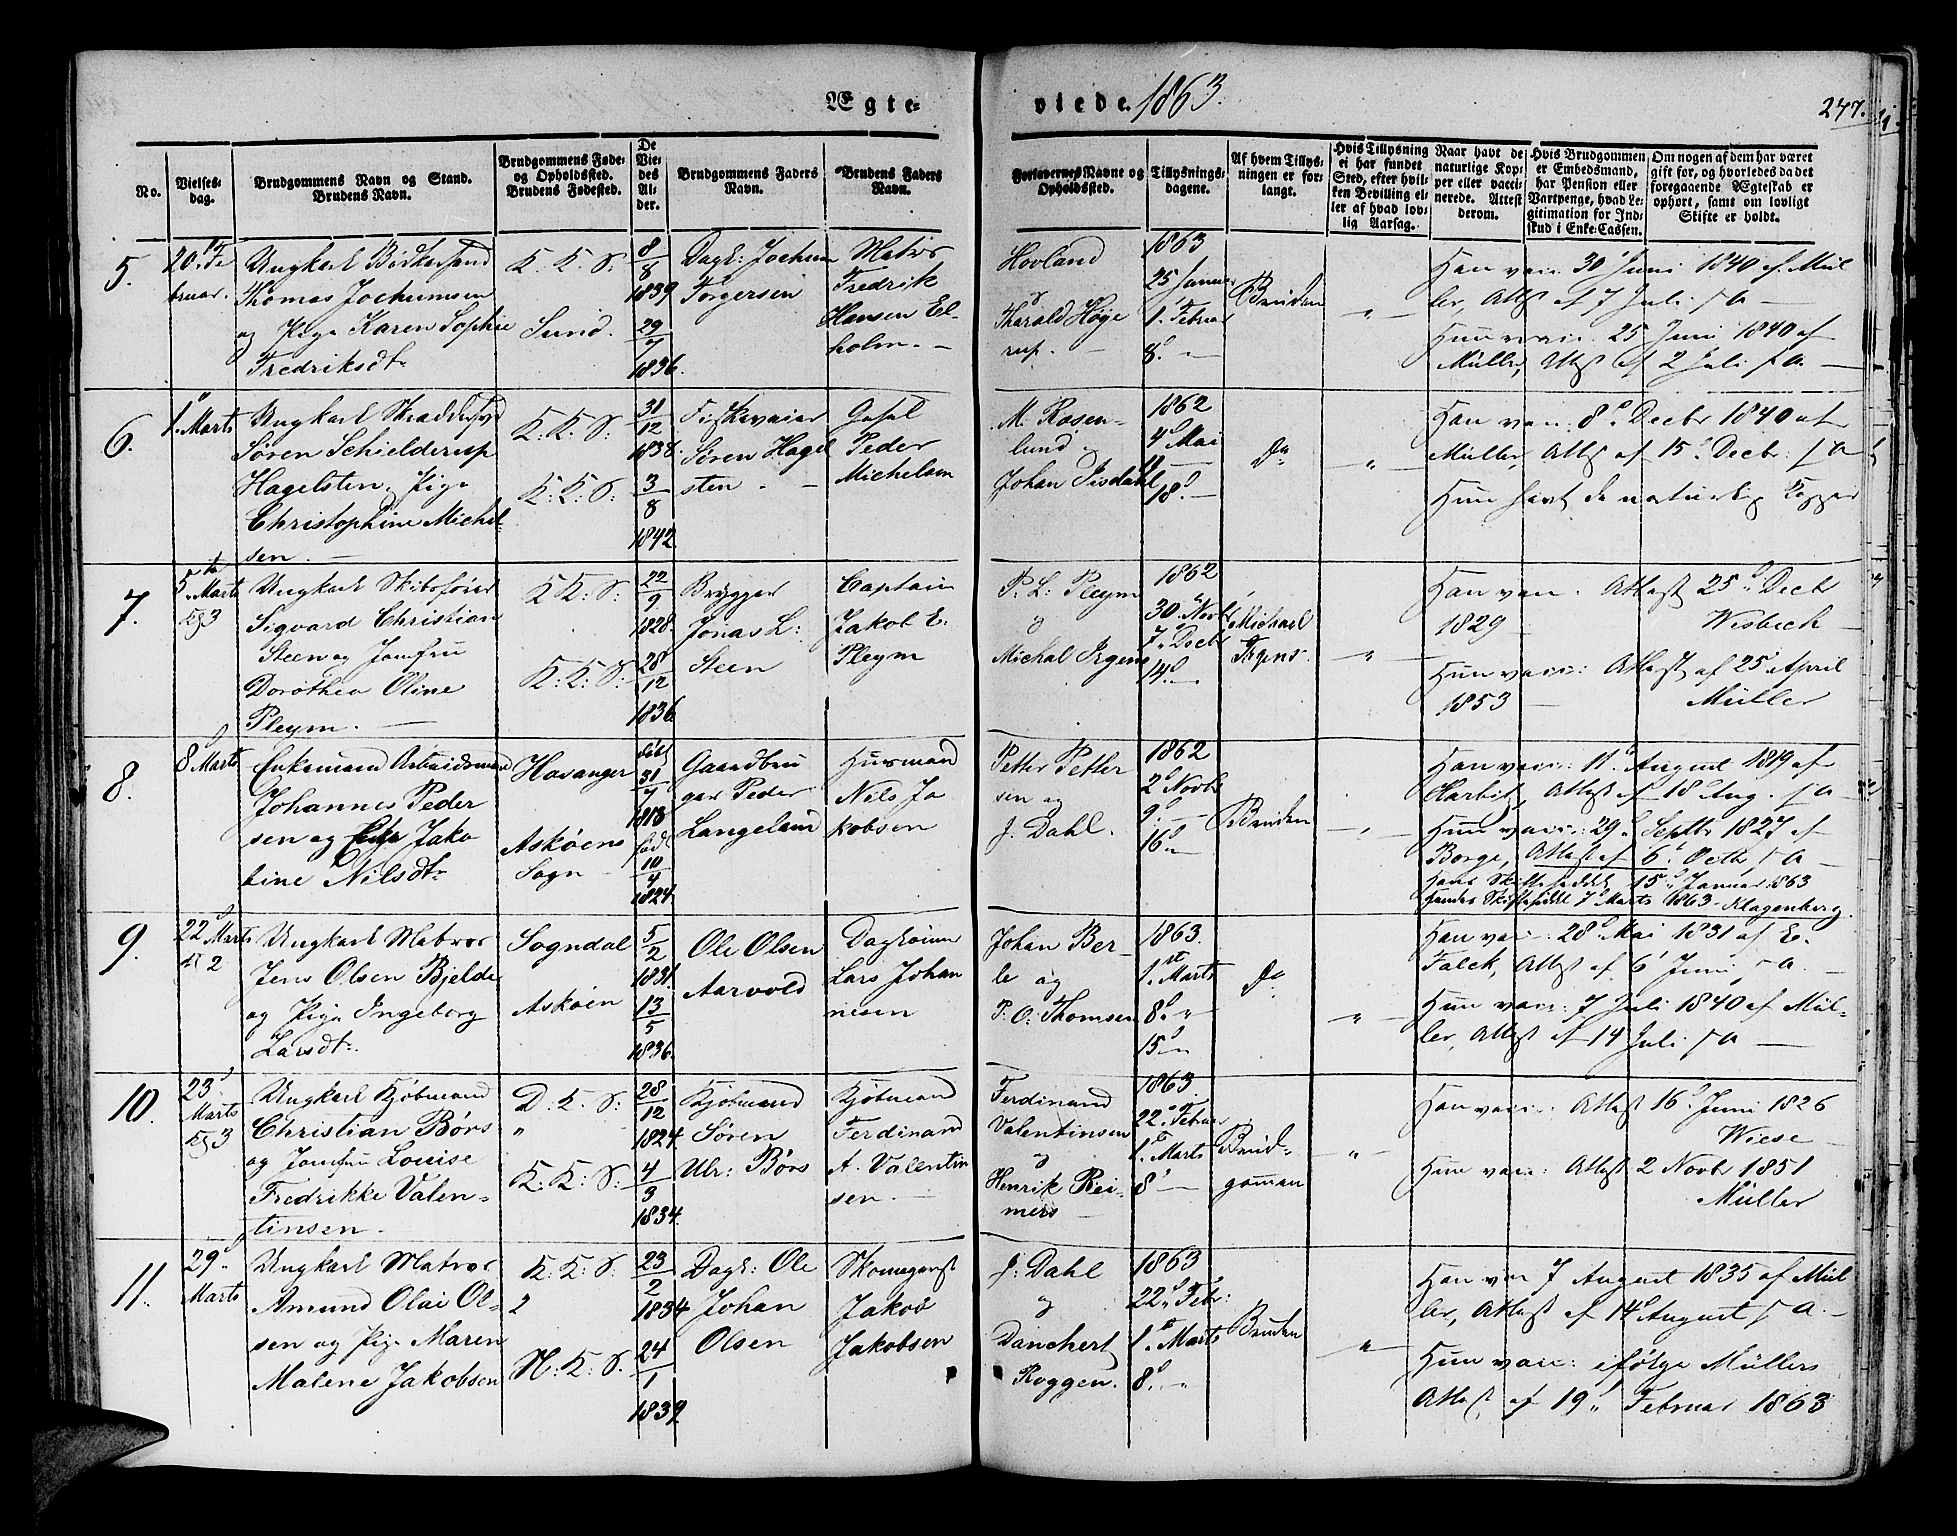 Ægte-
viede. 1863.
247.
No.
Vielses-
dag.
Brudgommens Navn og Stand.
Brudens Navn.
Brudgommens Føde-
og Opholdssted.
Brudens Fødested.
De
Vie-
des
Al-
der.
Brudgommens Faders
Navn.
Brudens Faders
Navn.
Forlovernes Navne og
Opholdssted.
Tillysnings-
dagene.
Af hvem Tillys-
ningen er for-
langt.
Hvis Tillysning
ei har fundet
Sted, efter hvil-
ken Bevilling el-
ler af hvad lov-
lig Aarsag.
Naar havt de
naturlige Kop-
per eller vacci-
nerede. Attest
derom.
Hvis Brudgommen
er Embedsmand,
har Pension eller
Vartpenge, hvad Le-
gitimation for Ind-
skud i Enke-Cassen.
Om nogen af dem har været
gift før, og hvorledes da det
foregaaende Ægteskab er
ophørt, samt om lovligt
Skifte er holdt.
5.
20. Fe
bruar.
Ungkarl Bødkersvend
Thomas Jochumsen
og Pige Karen Sophie
Fredriksdtr
K: K: S:
Sund.
8/8
1839
29/7
1836.
Dagk: Jochum
Torgersen
Matrs
Fredrik
Hansen El-
holm. -
Hovland
og
Tharald Høye
rup. -
1863
25 Januar
1. Februar
8. "
Bruden
"
Han vacc. 30 Juni 1840 af Mül
ler, Attst af 7 Juli s A -
Hun vacc. 25 Juni 1840 af
Müller, Attst af 2 Juli s A. -
6.
1. Marts
Ungkarl Skræddersvd
Søren Schielderup
Hagelsten, Pige
Christophine Michel-
sen. -
K: K: S:
K: K: S:
31/12
1838.
3/8
1842
Fiskevaier
Søren Hagel
sten. -
Gesel
Peder
Michelsen
M. Rosen-
lund -
Johan Iisdahl
1862
4 Mai
11 -
18. -
Do
"
Han vacc. 8 Decbr 1840 af
Müller, Attst af 15 Decbr: s A
Hun havt de naturlig Kopper
7.
5. Marts
Kg 3
Ungkarl Skibsfører
Sigvard Christian
Steen og Jomfru
Dorothea Oline
Pleym. -
K K: S:
K: K: S:
22/9
1828.
28/12
1836
Brygger
Jonas L:
Steen
Captain
Jakob E:
Pleym
P. L: Pleym
og
Michal Irgens
1862
30. Novbr
7. Decbr
14. -
Michael
Irgens.
"
Han vacc. Attest 25 Decbr
1829 - Wisbech -
Hun vacc: Attest af 25 April
1853 - Müller
8.
8 Marts
Enkemand Arbeidsmand
Johannes Peder
sen og Enke Jako
bine Nilsdtr
Havanger
Askøens
Sogn
født
31/7
1818
født
10/4
1824
Gaardbru
ger Peder
Langeland
Husmand
Nils Ja
kobsen
Petter Petter
sen og
J. Dahl.
1862
2 Novbr
9. -
16. -
Bruden
"
Han vacc: 11 August 1819 af
Harbitz, Attst af 18 Aug. s A -
Hun vacc: 29 Septbr 1827 af
Borge, Attst af 6 Octbr s A -
Hans Skifteseddel 15 Januar 1863
Hendes Skifteseddl 7 Marts 1863. Klagenberg.
9.
22 Marts
Kl 2
Ungkarl Matros
Jens Olsen Bjelde
og Pige Ingeborg
Larsdtr.
Sogndal
Askøen
5/2
1831.
13/5
1836.
Ole Olsen
Aarvold
Dagkøiner
Lars Johan
nesen
Johan Ber-
le og
P. O: Thomsen
1863.
1. Marts
8. "
15. "
Do
"
Han vacc: 28 Mai 1831 af E.
Falck, Attst af 6 Juni s A. -
Hun vacc: 7 Juli 1840 af Mül-
ler, Attst af 14 Juli s A -
10.
23
Marts
Kg 3
Ungkarl Kjøbmand
Christian Børs
og Jomfru Louise
Fredrikke Valen-
tinsen. -
D. K. S:
"
K: K: S:
28/12
1824
4/3
1834.
Kjøbmand
Søren
Ulr: Børs
Kjøbmand
Ferdinand
A. Valentin
sen. -
Ferdinand
Valentinsen
og
Henrik Rei-
mers
1863
22. Februar
1. Marts
8 -
Brud-
gommen
"
Han vacc. Attest 16 Juni 1826
Wiese -
Hun vacc: Attest 2 Novbr 1851
Müller
11.
29.
Marts
Ungkarl Matros
Amund Olai Ol-
sen og Pige Maren
Malene Jakobsen
K: K: S:
2
N: K: S.
23/2
1834
24/1
1839
Dagk: Ole
Johan
Olsen
Skomagerst
Jakob
Jakobsen
J: Dahl
og
Danchert
Roggen.
1863
22. Febr:
1. Marts
8. "
Bruden
"
Han vac 7 August 1835 af Mül
ler, Attest af 14 August s A. -
Hun vacc: ifølge Müllers
Attest af 19 Februar 1863